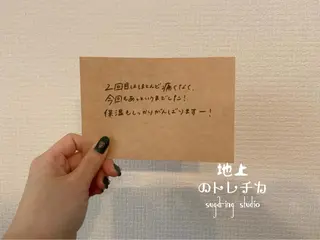 2回目はほとんど痛くなく、
今回もあっというまでした!
保湿もしっかりがんばりますー!
地上
のトレチカ
sugaring studio